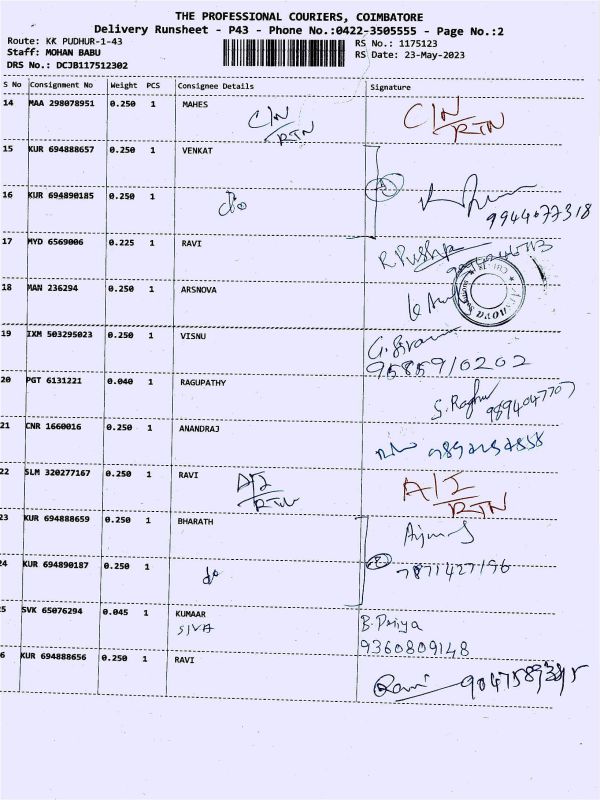 THE PROFESSIONAL COURIERS, COIMBATORE
Delivery Runsheet - P43 - Phone No.:0422-3505555 - Page No.:2
Route: KK PUDHUR-1-43 RS No.: 1175123
Staff: MOHAN BABU RS Date: 23-May-2023
DRS No.: DCJB117512302
S No Consignment No Weight PCS Consignee Details Signature
14 MAA 298078951 0.250 1 MAHES C/N RTN C/N RTN
15 KUR 694888657 0.250 1 VENKAT
16 KUR 694890185 0.250 1 do 9944077318
17 MYD 6569006 0.225 1 RAVI R Pushpa
18 MAN 236294 0.250 1 ARSNOVA
19 IXM 503295023 0.250 1 VISNU
95859/0202
20 PGT 6131221 0.040 1 RAGUPATHY S. Raghu 9894047707
21 CNR 1660016 0.250 1 ANANDRAJ
22 SLM 320277167 0.250 1 RAVI A/I RTN A/I RTN
23 KUR 694888659 0.250 1 BHARATH
24 KUR 694890187 0.250 1 do 7871427196
5 SVK 65076294 0.045 1 KUMAAR B. Priya
SIVA 9360809148
6 KUR 694888656 0.250 1 RAVI Ravi